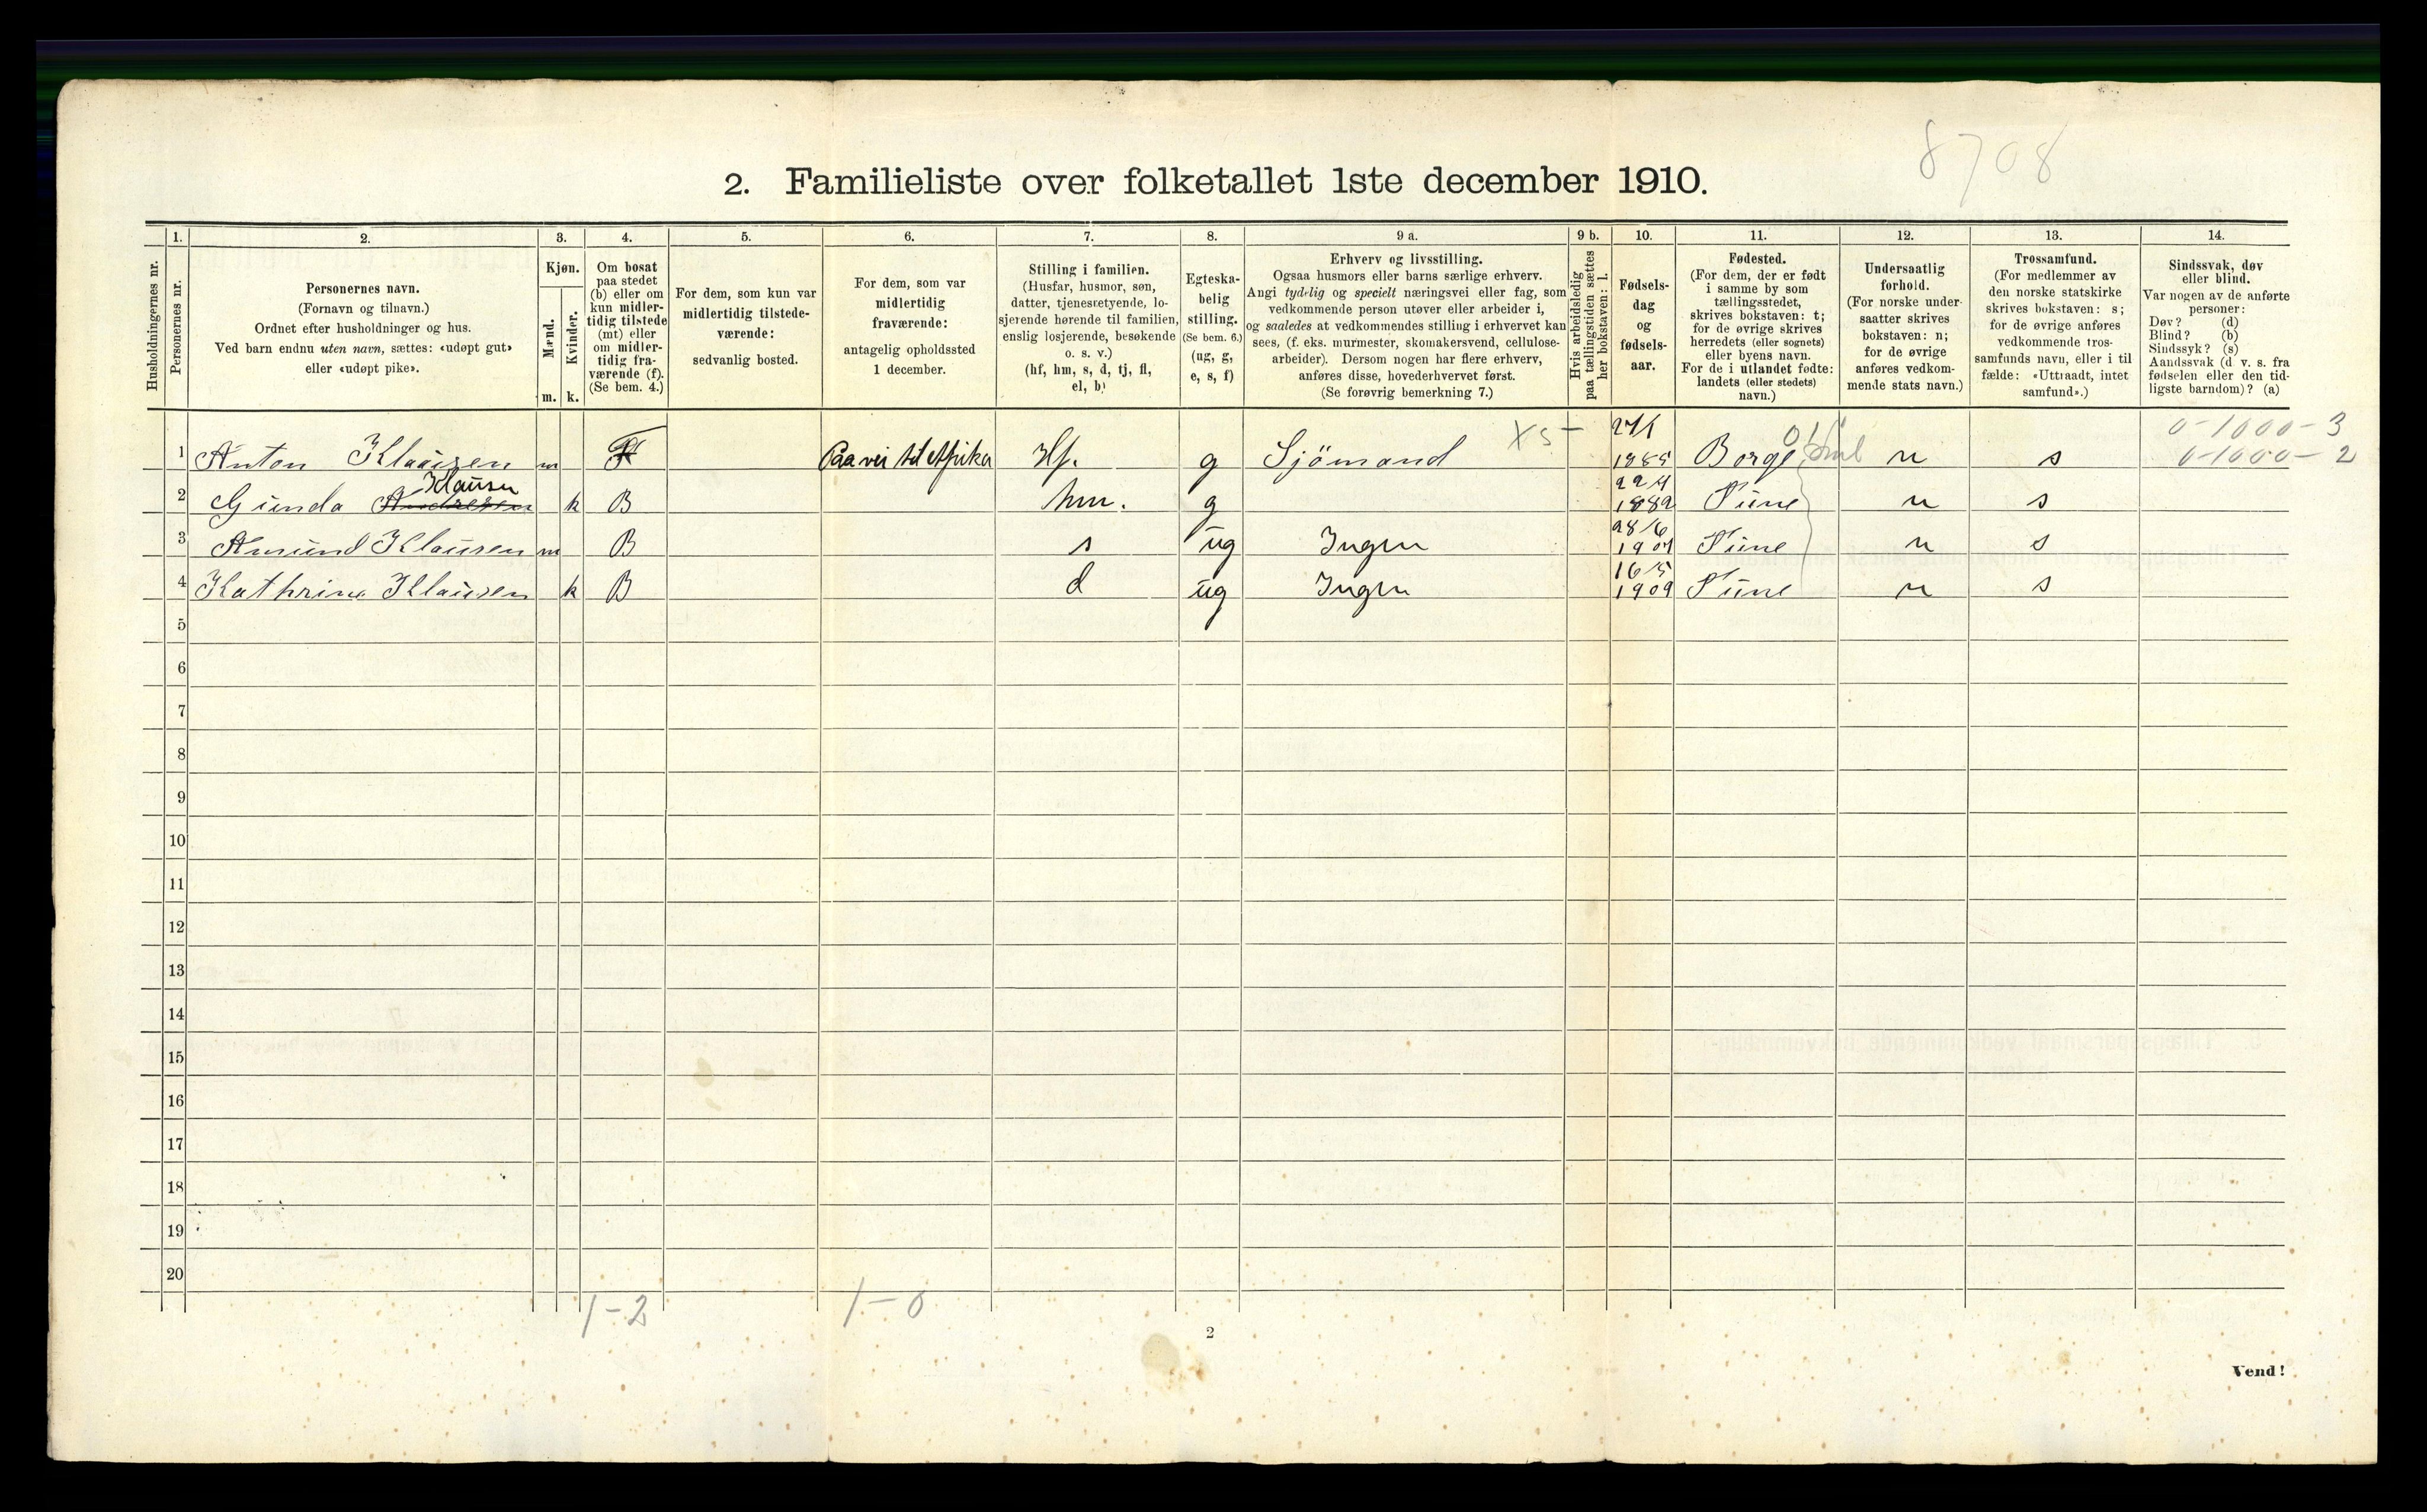 8708
2. Familieliste over folketallet 1ste december 1910.
Husholdningernes nr.
1.
Personernes nr.
2.
Personernes navn.
(Fornavn og tilnavn.)
Ordnet efter husholdninger og hus.
Ved barn endnu uten navn, sættes: «udøpt gut»
eller «udøpt pike».
3.
Kjøn.
Mænd.
Kvinder.
m. k.
4.
Om bosat
paa stedet
(b) eller om
kun midler-
tidig tilstede
(mt) eller
om midler-
tidig fra-
værende (f).
(Se bem. 4.)
5.
For dem, som kun var
midlertidig tilstede-
værende:
sedvanlig bosted.
6.
For dem, som var
midlertidig
fraværende:
antagelig opholdssted
1 december.
7.
Stilling i familien.
(Husfar, husmor, søn,
datter, tjenestetyende, lo-
sjerende hørende til familien,
enslig losjerende, besøkende
o. s. v.)
(hf, hm, s, d, tj, fl,
el, b)
8.
Egteska-
belig
stilling.
(Se bem. 6.)
(ug, g,
e, s, f)
9 a.
Erhverv og livsstilling.
Ogsaa husmors eller barns særlige erhverv.
Angi tydelig og specielt næringsvei eller fag, som
vedkommende person utøver eller arbeider i,
og saaledes at vedkommendes stilling i erhvervet kan
sees, (f. eks. murmester, skomakersvend, cellulose-
arbeider). Dersom nogen har flere erhverv,
anføres disse, hovederhvervet først.
(Se forøvrig bemerkning 7.)
9 b.
Hvis arbeidsledig
paa tællingstiden sættes
her bokstaven: l.
10.
Fødsels-
dag
og
fødsels-
aar.
11.
Fødested.
(For dem, der er født
i samme by som
tællingsstedet,
skrives bokstaven: t;
for de øvrige skrives
herredets (eller sognets)
eller byens navn.
For de i utlandet fødte:
landets (eller stedets)
navn.)
12.
Undersaatlig
forhold.
(For norske under-
saatter skrives
bokstaven: n;
for de øvrige
anføres vedkom-
mende stats navn.)
13.
Trossamfund.
(For medlemmer av
den norske statskirke
skrives bokstaven: s;
for de øvrige anføres
vedkommende tros-
samfunds navn, eller i til
fælde: «Uttraadt, intet
samfund».)
14.
Sindssvak, døv
eller blind.
Var nogen av de anførte
personer:
Døv? (d)
Blind? (b)
Sindssyk? (s)
Aandssvak (d. v. s. fra
fødselen eller den tid-
ligste barndom)? (a)
1 Anton Klausen m F Paa vei til Afrika Hf. g Sjömand X5- 27/1 1885 Borge 01 n s 0-1000-3
0-1000-2
2 Gunda Klausen k B hm. g 22/4 1882 Tune n s
3 Amund Klausen m B s ug Ingen 28/6 1907 Tune n s
4 Kathrine Klausen k B d ug Ingen 16/5 1909 Tune n s
5
6
7
8
9
10
11
12
13
14
15
16
17
18
19
20
1-2 1-0
2
Vend!